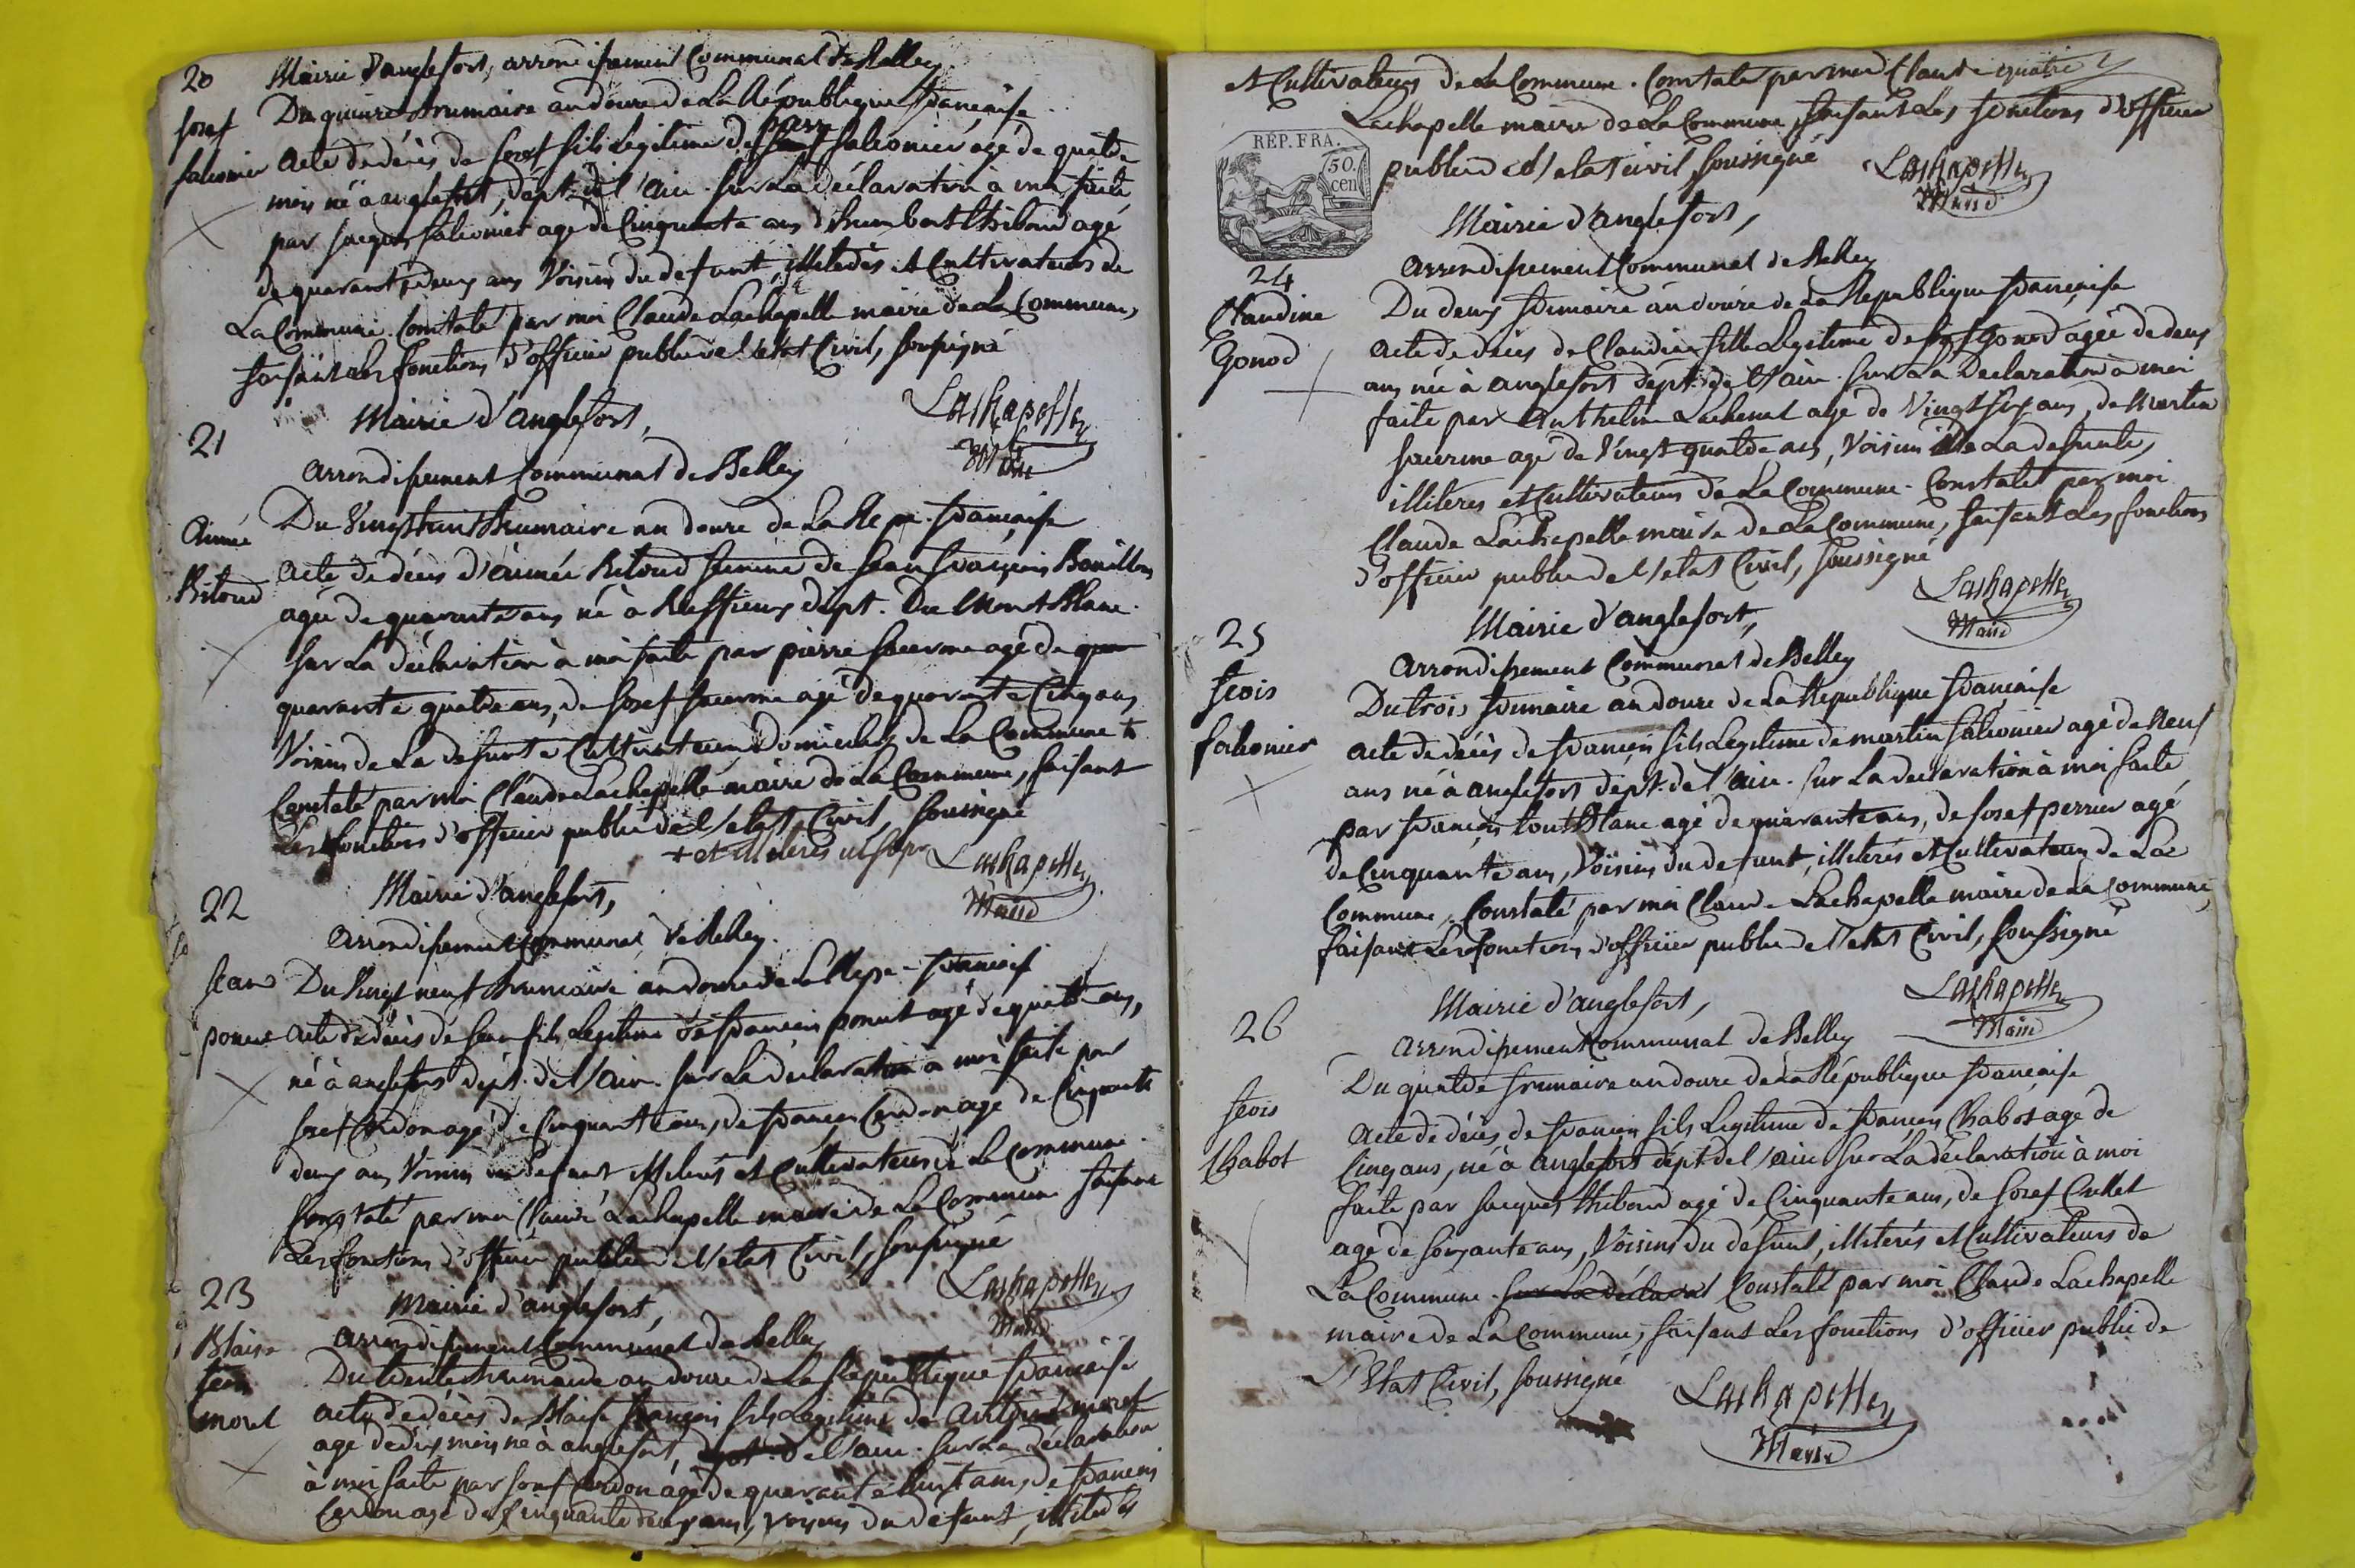 20
Mairie d'anglefort, arrondissement Communal de Belley.
Josef
falconier
Du quinze brumaire an douze de La République française
acte de décès de Josef fils Legitime de falconier agé de quatre
mois né à anglefort, dépt. de l'ain. sur La déclaration à moi faite
par Jacques falconier agé de Cinquante ans d'humbert thiboud agé
de quarante deux ans Voisins du defunt, illiterés et Cultivateurs de
La Commune. Constaté par moi Claude Lachapelle maire de La Commune,
faisant les fonctions d'officier public de l'etat Civil, soussigné
Lachapelle
Maire
21
Mairie d'anglefort,
arrondissement Communal de Belley
Aimée
Ritoud
Du Vingt huit brumaire an douze de La Repe. française
acte de décès d'aimée Ritoud femme de Jean françois Bouillon
agée de quarante ans né à Ruffieux dépt. Du Mont Blanc.
sur La déclaration à moi faite par pierre Jacerme agé de qua
quarante quatre ans, de Josef Jacerme agé de quarante Cinq ans
Voisins de La defunte Cultivateurs Domiciliés de La Commune +
Constaté par moi Claude Lachapelle maire de La Commune, faisant
Les fonctions d'officier public de l'etat Civil, soussigné
+ et illiterés
Lachapelle
Maire
22
Mairie d'anglefort,
arrondissement Communal de Belley.
Jean
ponut
Du Vingt neuf brumaire an douze de La Repe. française
acte de décès de Jean fils Legitime de françois ponut agé de quatre ans,
né à anglefort dépt. de l'ain. sur La declaration à moi faite par
Josef Cordon agé de Cinquante ans, de françois Cordon agé de Cinquante
deux ans Voisins du defunt illiterés et Cultivateurs de La Commune.
Constaté par moi Claude Lachapelle maire de La Commune faisant
Les fonctions d'officier public de l'etat Civil, soussigné
Lachapelle
Maire
23
Mairie d'anglefort,
arrondissement Communal de Belley
Blaise
fcois
moret
Du trente brumaire an douze de La République française
acte de décès de Blaise françois fils Legitime de moret
agé de dix mois né à anglefort, dept. de l'ain. sur La déclaration
à moi faite par Josef Cordon agé de quarante huit ans, de françois
Cordon agé de Cinquante deux ans, voisins du defunt, illiterés
et Cultivateurs de La Commune. Constaté par moi Claude
Lachapelle maire de La Commune, faisant Les fonctions d'officier
public de l'etat civil, soussigné
Lachapelle
Maire
RÉP. FRA.
50.
cen
Mairie d'anglefort,
arrondissement Communal de Belley
24
Claudine
Gonod
Du deux frimaire an douze de La Republique française
acte de décès de Claudine fille Legitime de Gonod agée de deux
ans née à anglefort dépt. de l'ain. sur La Declaration à moi
faite par Anthelme Lachenal agé de Vingt six ans, de Martin
Jacerme agé de Vingt quatre ans, Voisins de La defunte,
illiterés et Cultivateurs de La Commune. Constaté par moi
Claude Lachapelle maire de La Commune, faisant Les fonctions
d'officier public de l'etat Civil, soussigné
Lachapelle
Maire
25
Mairie d'anglefort,
arrondissement Communal de Belley
fcois
falconier
Du trois frimaire an douze de La Republique française
acte de décès de françois fils Legitime de martin falconier agé de Neuf
ans né à anglefort dépt. de l'ain. sur La declaration à moi faite
par françois toutblanc agé de quarante ans, de Josef perrier agé
de Cinquante ans, Voisins du defunt, illiterés et Cultivateurs de La
Commune, Constaté par moi Claude Lachapelle maire de La Commune,
faisant Les fonctions d'officier public de l'etat Civil, soussigné
Lachapelle
Maire
26
Mairie d'anglefort,
arrondissement Communal de Belley
fcois
Chabot
Du quatre frimaire an douze de La République française
Acte de décès de françois fils Legitime de françois Chabot agé de
Cinq ans, né à anglefort dépt. de l'ain sur La déclaration à moi
faite par Jacques thiboud agé de Cinquante ans, de Josef Cullet
agé de soixante ans, Voisins du défunt, illiterés et Cultivateurs de
La Commune. sur La déclarat Constaté par moi Claude Lachapelle
maire de La Commune, faisant Les fonctions d'officier public de
L'Etat Civil, soussigné
Lachapelle
Maire